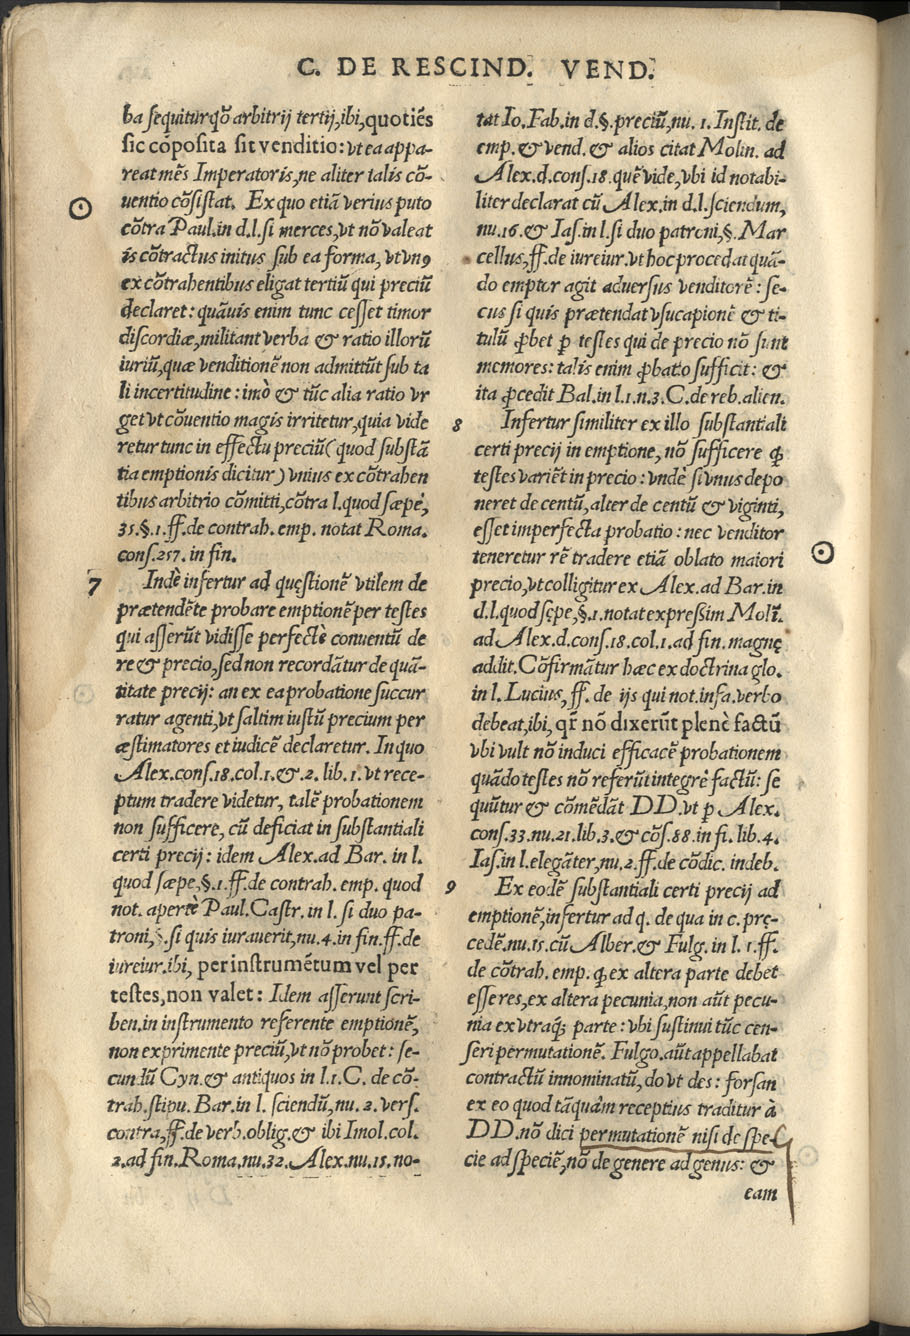 C. DE RESCIND. VEND.
ba sequitur qđ arbitrij tertij, ibi, quotiẽs
sic cõposita sit venditio: vt ea appa-
reat mẽs Imperatoris, ne aliter talis cõ-
uentio cõsistat. Ex quo etiã verius puto
cõtra Paul. in d.l. si merces, vt nõ valeat
is cõtractus initus sub ea forma, vt vnꝰ
ex cõtrahentibus eligat tertiũ qui preciũ
declaret: quãuis enim tunc cesset timor
discordiæ, militant verba & ratio illorũ
iuriũ, quæ venditionẽ non admittũt sub ta
li incertitudine: imò & tũc alia ratio vr
get vt cõuentio magis irritetur, quia vide
retur tunc in effectu preciũ (quod substã
tia emptionis dicitur) vnius ex cõtrahen
tibus arbitrio cõmitti, cõtra l. quod sæpè,
35.§.1.ff. de contrah. emp. notat Roma.
cons. 257. in fin.
7 Indè infertur ad quęstionẽ vtilem de
prætendẽte probare emptionẽ per testes
qui asserũt vidisse perfectè conuentũ de
re & precio, sed non recordãtur de quã-
titate precij: an ex ea probatione succur
ratur agenti, vt saltim iustũ precium per
æstimatores et iudicẽ declaretur. In quo
Alex. cons. 18. col. 1. & 2. lib. 1. vt rece-
ptum tradere videtur, talẽ probationem
non sufficere, cũ deficiat in substantiali
certi precij: idem Alex. ad Bar. in l.
quod sæpe, §.1.ff. de contrah. emp. quod
not. apertè Paul. Castr. in l. si duo pa-
troni, §. si quis iurauerit, nu. 4. in fin. ff. de
iureiur. ibi, per instrumẽtum vel per
testes, non valet: Idem asserunt scri-
ben. in instrumento referente emptionẽ,
non exprimente preciũ, vt nõ probet: se-
cundũ Cyn. & antiquos in l. 1. C. de cõ-
trah. stipu. Bar. in l. sciendũ, nu. 2. vers.
contra, ff. de verb. oblig. & ibi Imol. col.
2. ad fin. Roma. nu. 32. Alex. nu. 15. no-
tat Io. Fab. in d.§. preciũ, nu. 1. Instit. de
emp. & vend. & alios citat Molin. ad
Alex. d. cons. 18. quẽ vide, vbi id notabi-
liter declarat cũ Alex. in d.l. sciendum,
nu. 16. & Ias. in l. si duo patroni, §. Mar
cellus, ff. de iureiur. vt hoc procedat quã-
do emptor agit aduersus venditorẽ: se-
cus si quis prætendat vsucapionẽ & ti-
tulũ ꝓbet ꝑ testes qui de precio nõ sunt
memores: talis enim ꝓbatio sufficit: &
ita ꝓcedit Bal. in l. 1. n. 3. C. de reb. alien.
8 Infertur similiter ex illo substantiali
certi precij in emptione, nõ sufficere ꝙ
testes variẽt in precio: vndè si vnus depo
neret de centũ, alter de centũ & viginti,
esset imperfecta probatio: nec venditor
teneretur rẽ tradere etiã oblato maiori
precio, vt colligitur ex Alex. ad Bar. in
d.l. quod sępe, §. 1. notat expreßim Molĩ.
ad Alex. d. cons. 18. col. 1. ad fin. magnę
addit. Cõfirmãtur hæc ex doctrina glo.
in l. Lucius, ff. de ijs qui not. infa. verbo
debeat, ibi, qr̃ nõ dixerũt plenè factũ
vbi vult nõ induci efficacẽ probationem
quãdo testes nõ referũt integrè factũ: se
quũtur & cõmẽdãt DD. vt ꝑ Alex.
cons. 33. nu. 21. lib. 3. & cõs. 88. in fi. lib. 4.
Ias. in l. elegãter, nu. 2. ff. de cõdic. indeb.
9 Ex eodẽ substantiali certi precij ad
emptionẽ, infertur ad q. de qua in c. prę-
cedẽ. nu. 15. cũ Alber. & Fulg. in l. 1. ff.
de cõtrah. emp. ꝙ ex altera parte debet
esse res, ex altera pecunia, non aũt pecu-
nia ex vtraq; parte: vbi sustinui tũc cen-
seri permutationẽ. Fulgo. aũt appellabat
contractũ innominatũ, do vt des: forsan
ex eo quod tãquàm receptius traditur à
DD. nõ dici permutationẽ nisi de spe-
cie ad speciẽ, nõ de genere ad genus: &
eam